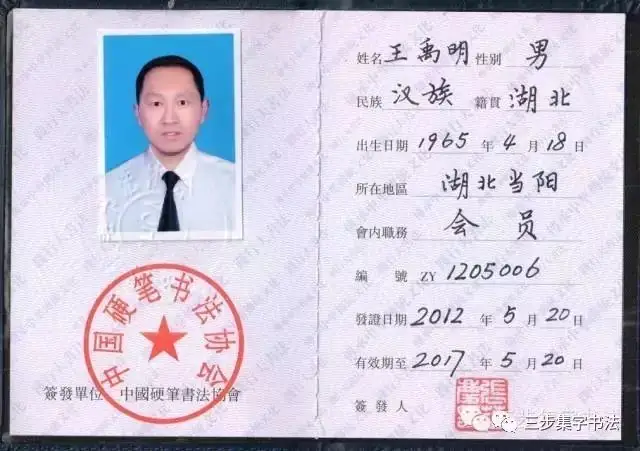 中国硬笔书法协会
簽發單位 中國硬筆書法協會
姓名 王禹明 性别 男
民族 汉族 籍貫 湖北
出生日期 1965 年 4 月 18 日
所在地區 湖北当阳
會内職務 会员
編號 ZY 1205006
發證日期 2012 年 5 月 20 日
有效期至 2017 年 5 月 20 日
簽發人
三步集字书法